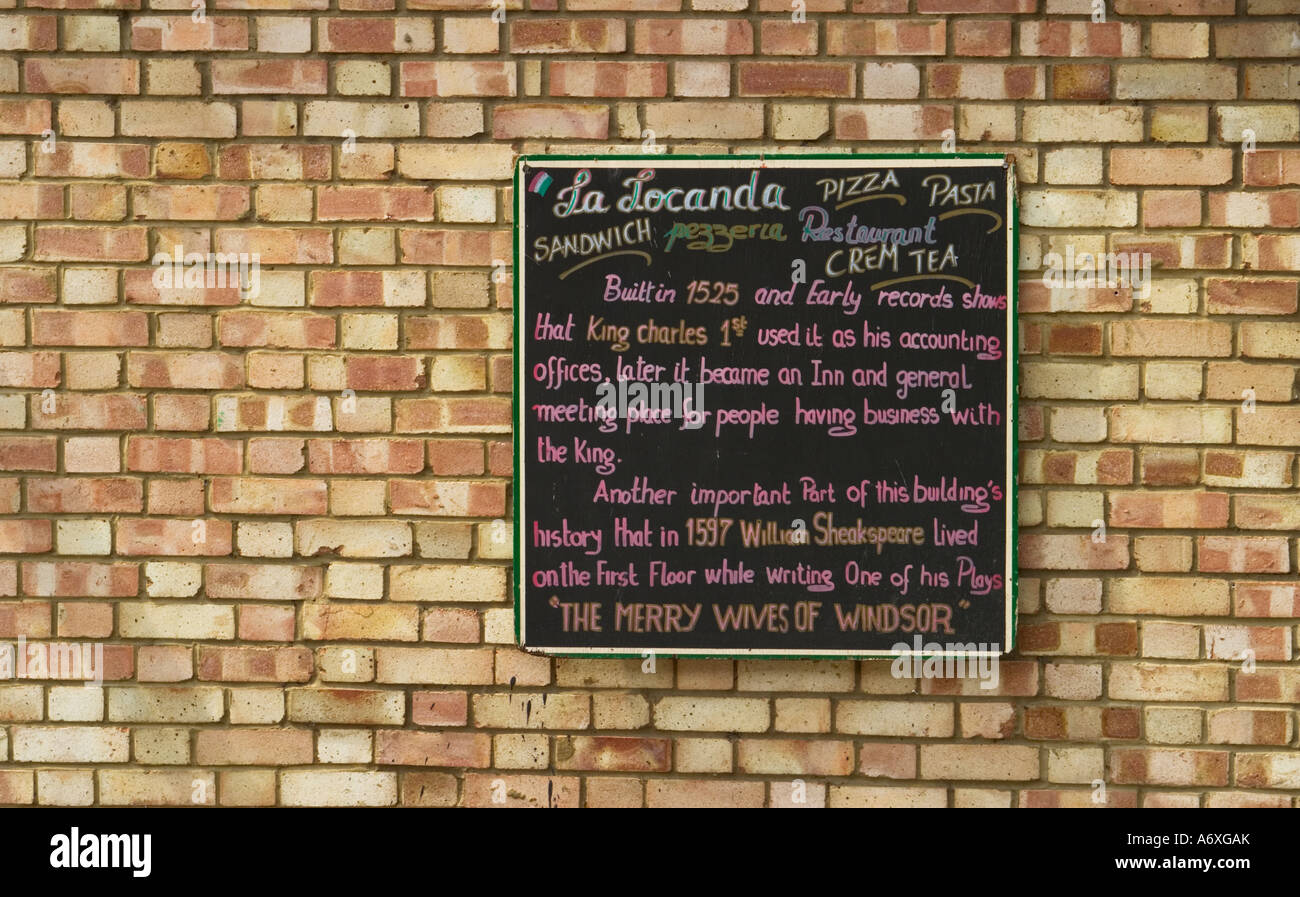 La Locanda PIZZA PASTA
SANDWICH pezzeria Restaurant
CREM TEA
Built in 1525 and Early records shows
that King charles 1st used it as his accounting
offices, later it became an Inn and general
meeting place for people having business with
the King.
Another important Part of this building's
history that in 1597 William Sheakspeare lived
on the First Floor while writing One of his Plays
"THE MERRY WIVES OF WINDSOR"
alamy
alamy
Image ID: A6XGAK
www.alamy.com